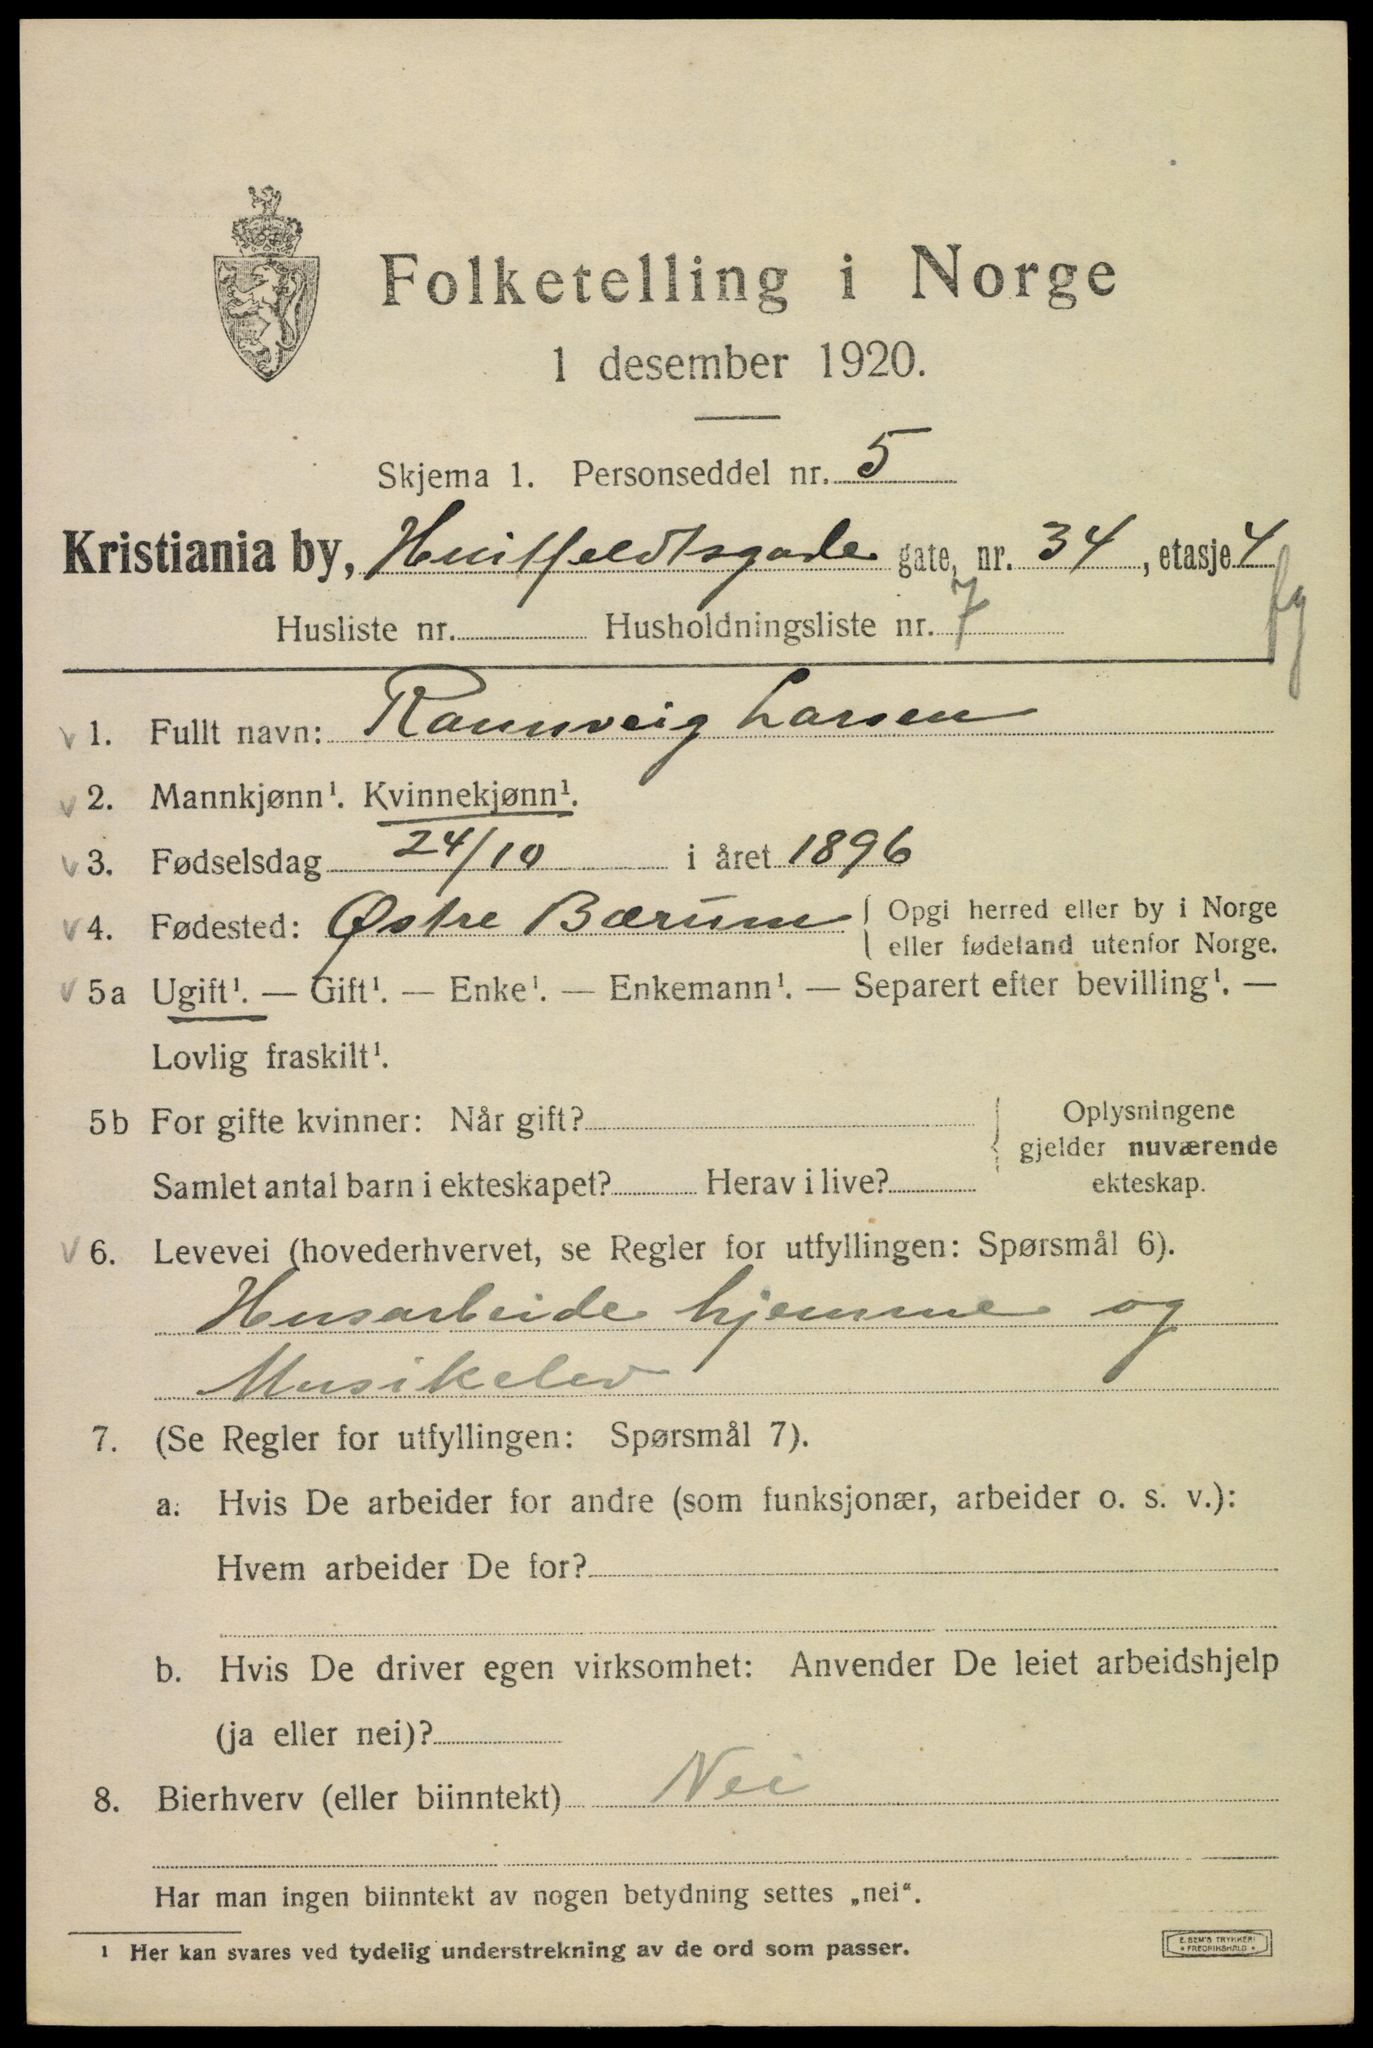 Folketelling i Norge
1 desember 1920.
Skjema 1. Personseddel nr. 5
Kristiania by, Huitfeldtsgade gate, nr. 34, etasje 4
fg
Husliste nr. Husholdningsliste nr. 7
1. Fullt navn: Rannveig Larsen
2. Mannkjønn¹. Kvinnekjønn¹.
3. Fødselsdag 24/10 i året 1896
4. Fødested: Østre Bærum { Opgi herred eller by i Norge
eller fødeland utenfor Norge.
5a Ugift¹. — Gift¹. — Enke¹. — Enkemann¹. — Separert efter bevilling¹. —
Lovlig fraskilt¹.
5b For gifte kvinner: Når gift? { Oplysningene
gjelder nuværende
Samlet antal barn i ekteskapet? Herav i live? ekteskap.
6. Levevei (hovederhvervet, se Regler for utfyllingen: Spørsmål 6).
Husarbeide hjemme og
Musikelev
7. (Se Regler for utfyllingen: Spørsmål 7).
a. Hvis De arbeider for andre (som funksjonær, arbeider o. s. v.):
Hvem arbeider De for?
b. Hvis De driver egen virksomhet: Anvender De leiet arbeidshjelp
(ja eller nei)?
8. Bierhverv (eller biinntekt) Nei
Har man ingen biinntekt av nogen betydning settes „nei“.
¹ Her kan svares ved tydelig understrekning av de ord som passer.
E. SEM'S TRYKKERI
• FREDRIKSHALD •